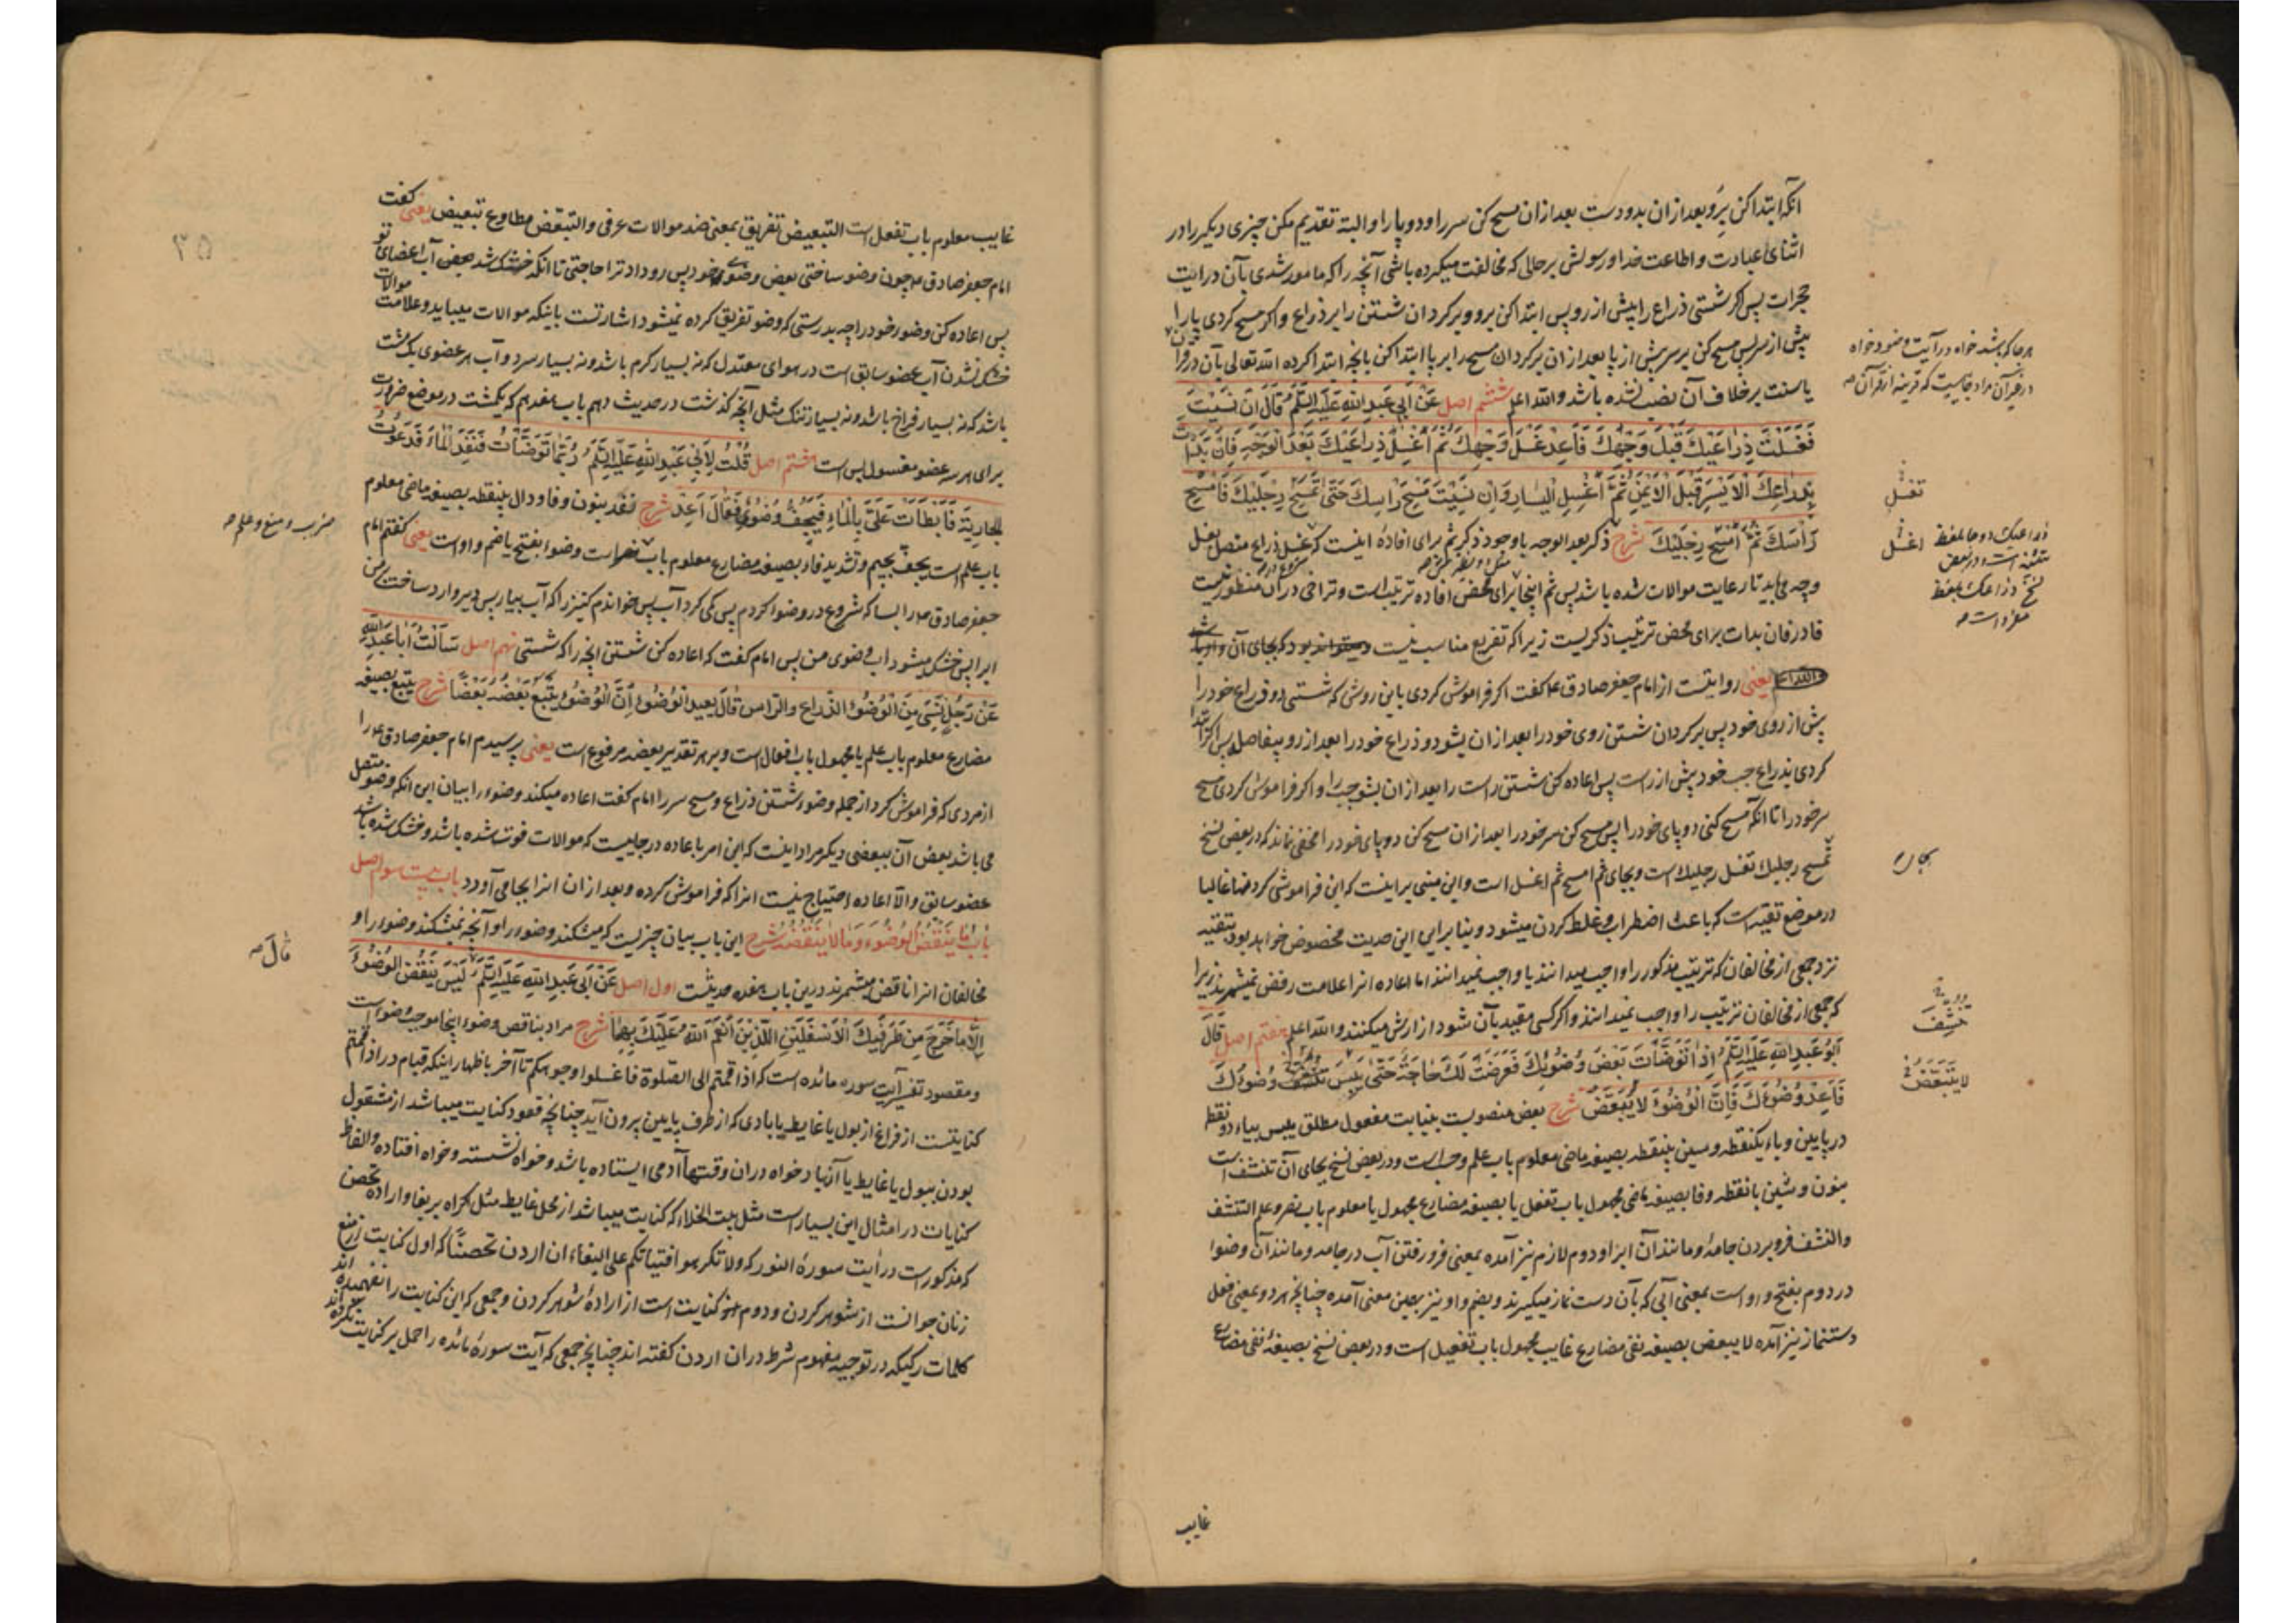 آنکه ابتدا کن برو بعد از ان بدو دست بعد از ان مسح کن سر را و دو پا را و البته تقدیم مکن چیزی دیگر را در
اثنای عبادت و اطاعت خدا و رسولش بر حالی که مخالفت میکرده باشی آنچه را که مامور شدی بآن در آیت
حجرات پس اگر شستی ذراع را پیش از رو پس ابتدا کن برو و برگردان شستن را بر ذراع و اگر مسح کردی پا را
پیش از سر پس مسح کن بر سر پیش از پا بعد از ان برگردان مسح را بر پا ابتدا کن بانچه ابتدا کرده الله تعالی بآن در قرآن
یا سنت بر خلاف آن نصب نشده باشد والله اعلم ششم اصل عَنْ اَبی عَبدِ اللهِ عَلَیهِ السَّلَمُ قَالَ اِنْ نَسِیْتَ
فَغَسَلْتَ ذِرَاعَیْكَ قَبْلَ وَجْهِكَ فَاَعِدْ غَسْلَ وَجْهِكَ ثُمَّ اغْسِلْ ذِرَاعَیْكَ بَعْدَ الْوَجْهِ فَاِنْ بَدَاْتَ
بِذِرَاعِكَ الْاَیْسَرِ قَبْلَ الْاَیْمَنِ ثُمَّ اغْسِلِ الْیَسَارَ وَاِنْ نَسِیْتَ مَسْحَ رَاْسِكَ حَتّٰی تَمْسَحَ رِجْلَیْكَ فَامْسَحْ
رَاْسَكَ ثُمَّ امْسَحْ رِجْلَیْكَ شرح ذکر بعد الوجه با وجود ذکر ثم برای افادهٔ اینست که غسل ذراع متصل بغسل
وجه می‌باید تا رعایت موالات شده باشد پس ثم اینجا برای محض افاده ترتیب است و تراخی در ان منظور نیست
فا در فان بدات برای محض ترتیب ذکریست زیرا که تفریع مناسب نیست و میتواند بود که بجای آن واو باشد
والله اعلم یعنی روایتست از امام جعفر صادق ع گفت اگر فراموش کردی باین روش که شستی دو ذراع خود را
پیش از روی خود پس برگردان شستن روی خود را بعد از ان بشو دو ذراع خود را بعد از رو بیفاصله پس اگر ابتدا
کردی بذراع چپ خود پیش از راست پس اعاده کن شستن راست را بعد از ان بشو چپ را و اگر فراموش کردی مسح
سر خود را تا انکه مسح کنی دو پای خود را پس مسح کن سر خود را بعد از ان مسح کن دو پای خود را مخفی نماند که در بعض نسخ
تمسح رجلیك تغسل رجلیك است و بجای ثم امسح ثم اغسل است و این مبنی بر اینست که این فراموشی کردنها غالبا
در موضع تقیه است که باعث اضطراب و غلط کردن میشود و بنا براین این حدیث مخصوص خواهد بود بتقیه
نزد جمعی از مخالفان که ترتیب مذکور را واجب میدانند یا واجب نمیدانند اما اعاده انرا علامت رفض نمیشمرند زیرا
که جمعی از مخالفان ترتیب را واجب نمیدانند و اگر کسی مقید بآن شود ازارش میکنند والله اعلم هفتم اصل قَالَ
اَبُو عَبدِ اللهِ عَلَیهِ السَّلَمُ اِذَا تَوَضَّاْتَ بَعْضَ وُضُوئِكَ فَعَرَضَتْ لَكَ حَاجَةٌ حَتّٰی یَبِسَ وَضُوئُكَ
فَاَعِدْ وُضُوءَكَ فَاِنَّ الْوُضُوءَ لَا یُبَعَّضُ شرح بعض منصوبست بنیابت مفعول مطلق یبس بیاء دو نقطه
در پایین و باء یکنقطه و سین بینقطه بصیغه ماضی معلوم باب علم و حسب است و در بعض نسخ بجای آن تنشف است
بنون و شین بانقطه و فا بصیغه ماضی مجهول باب تفعل یا بصیغه مضارع مجهول یا معلوم باب نصر و علم التنشف
والنشف فرو بردن جامه و مانند آن ابرا و دوم لازم نیز آمده بمعنی فرو رفتن آب در جامه و مانند آن وضوا
در دوم بفتح واو است بمعنی آبی که بآن دست نماز میگیرند و بضم واو نیز بهمین معنی آمده چنانچه هر دو بمعنی فعل
دستنماز نیز آمده لا یبعض بصیغه نفی مضارع غایب مجهول باب تفعیل است و در بعض نسخ بصیغهٔ نفی مضارع
غایب
هر جا که باشد خواه در آیت وضو و خواه
تغسل
اغسل
ذراعیك دوجا بلفظ
تثنیه است و در بعض
نسخ ذراعك بلفظ
مفرد است
تنشف
لا یتبعض
غایب معلوم باب تفعل است التبعیض تفریق بمعنی ضد موالات عرفی والتبعض مطاوع تبعیض یعنی گفت
امام جعفر صادق ع چون وضو ساختی بعض وضوی خود پس رو داد ترا حاجتی تا انکه خشک شد بعض آب اعضای تو
پس اعاده کن وضو خود را چه بدرستی که وضو تفریق کرده نمیشود اشارتست باینکه موالات میباید و علامت موالات
خشک نشدن آب عضو سابق است در هوای معتدل که نه بسیار گرم باشد و نه بسیار سرد و آب هر عضوی یک مشت
باشد که نه بسیار فراخ باشد و نه بسیار تنگ مثل آنچه گذشت در حدیث دهم باب هفدهم که یکمشت در موضع ضرورت
برای هر سه عضو مغسول بس است هشتم اصل قُلْتُ لِاَبِی عَبْدِ اللهِ عَلَیهِ السَّلَمُ رُبَّمَا تَوَضَّاْتُ فَنَفَدَ الْمَاءُ فَدَعَوْتُ
الْجَارِیَةَ فَاَبْطَاَتْ عَلَیَّ بِالْمَاءِ فَیَجِفُّ وَضُوئِی فَقَالَ اَعِدْ شرح نفد بنون و فا و دال بینقطه بصیغه ماضی معلوم
باب علم است یجف بجیم و تشدید فاء بصیغه مضارع معلوم باب ضرب است وضوا بفتح یا ضم واو است یعنی گفتم امام
جعفر صادق ع را بسا که شروع در وضوا کردم پس کمی کرد آب پس خواندم کنیز را که آب بیار پس دیر وارد ساخت بر من
ابرا پس خشک میشود آب وضوی من پس امام گفت که اعاده کن شستن انچه را که شستی نهم اصل سَاَلْتُ اَبَا عَبْدِ اللهِ
عَنْ رَجُلٍ نَسِیَ مِنَ الْوُضُوءِ الذِّرَاعَ وَالرَّاْسَ قَالَ یُعِیدُ الْوُضُوءَ اِنَّ الْوُضُوءَ یُتْبَعُ بَعْضُهُ بَعْضًا شرح یتبع بصیغه
مضارع معلوم باب علم یا مجهول باب افعال است و بر هر تقدیر بعضه مرفوع است یعنی پرسیدم امام جعفر صادق ع را
از مردی که فراموش کرد از جمله وضوء شستن ذراع و مسح سر را امام گفت اعاده میکند وضوء را بیان این انکه وضو متصل
می باشد بعض آن ببعضی دیگر مراد اینست که این امر باعاده در جاییست که موالات فوت شده باشد و خشک شده باشد
عضو سابق والّا اعاده احتیاج نیست انرا که فراموش کرده و بعد از ان انرا بجا می آورد باب بیست سوم اصل
بَابُ مَا یَنْقُضُ الْوُضُوءَ وَمَا لَا یَنْقُضُهُ شرح این باب بیان چیزیست که میشکند وضوء را و آنچه نمیشکند وضوء را و
مخالفان انرا ناقض میشمرند درین باب هفده حدیثست اول اصل عَنْ اَبِی عَبدِ اللهِ عَلَیهِ السَّلَمُ لَیْسَ یَنْقُضُ الْوُضُوءَ
اِلَّا مَا خَرَجَ مِنْ طَرَفَیْكَ الْاَسْفَلَیْنِ اللَّذَیْنِ اَنْعَمَ اللهُ عَلَیْكَ بِهِمَا شرح مراد بناقض وضوء اینجا موجب وضوء است
و مقصود تفسیر آیت سوره مائده است که اذا قمتم الی الصلوة فاغسلوا وجوهکم تا آخر باظهار اینکه قیام در اذا قمتم
کنایتست از فراغ از بول یا غایط یا بادی که از طرف پایین بیرون آید چنانچه قعود کنایت میباشد از مشغول
بودن ببول یا غایط یا آنها و خواه دران وقتها آدمی ایستاده باشد و خواه نشسته و خواه افتاده و الفاظ
کنایات در امثال این بسیار است مثل بیت الخلاء که کنایت میباشد از محل غایط مثل اکراه بر بغا و اراده تحصن
که مذکور است در آیت سورهٔ النور که ولا تکرهوا فتیاتکم علی البغاء ان اردن تحصنًا که اول کنایت از منع
زنان جوانست از شوهر کردن و دوم کنایت است از ارادهٔ شوهر کردن و جمعی که این کنایت را نفهمیده اند
کلمات رکیکه در توجیه مفهوم شرط در ان اردن گفته اند چنانچه جمعی که آیت سورهٔ مائده را حمل بر کنایت نکرده اند
۵۶
ضرب و منع و علم
قَالَ